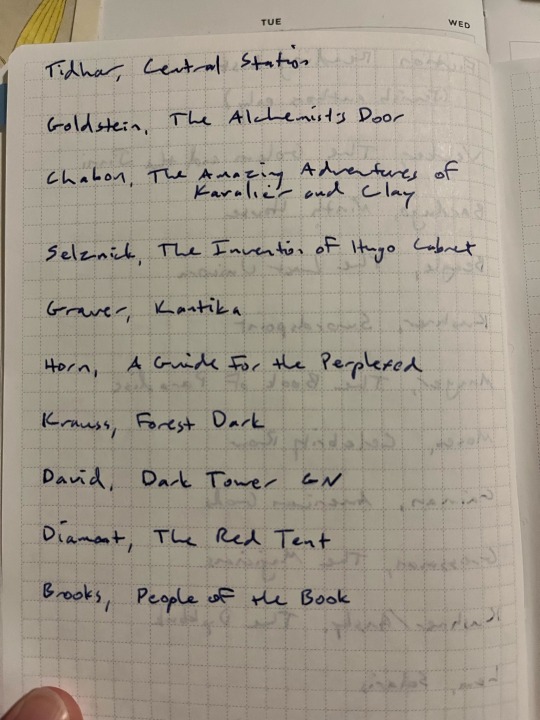 TUE
WED
Tidhar, Central Station
Goldstein, The Alchemist's Door
Chabon, The Amazing Adventures of
Kavalier and Clay
Selznick, The Invention of Hugo Cabret
Graver, Kantika
Horn, A Guide for the Perplexed
Krauss, Forest Dark
David, Dark Tower GN
Diamant, The Red Tent
Brooks, People of the Book